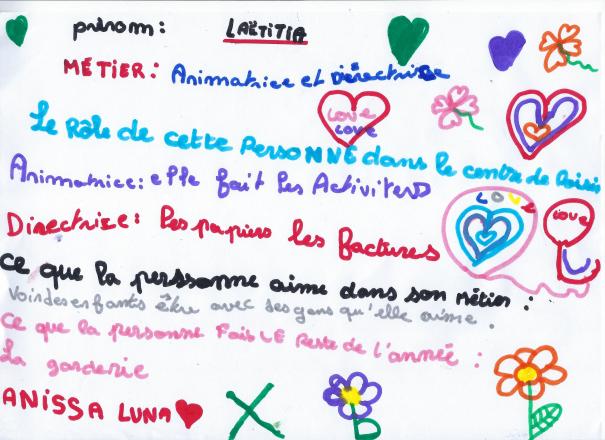 prénom: LAËTITIA
MÉTIER: Animatrice et Dirèctrise
LOVE
LOVE
Le Rôle de cette PersoNNE dans le centre de loisis
Animatrice: elle fait les Activiter
LOVE
LOVE
Directrice: les papiers les factures
ce que la perssonne aime dans son métier :
Voir des enfants être avec ses gens qu'elle aime.
ce que la personne Fais LE reste de l'année :
La garderie
ANISSA LUNA